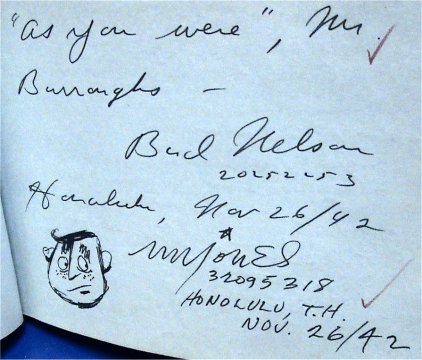 "as you were", Mr.
Burroughs —
Bud Nelson
20252253
Honolulu, Nov 26/42
JONES
32095318
HONOLULU, T.H.
NOV. 26/42